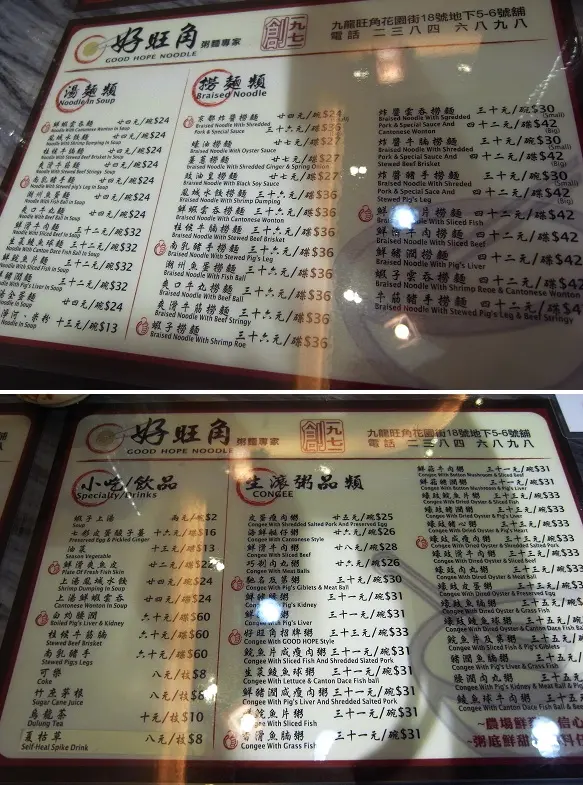 好旺角 粥麵專家
GOOD HOPE NOODLE
創 九七
九龍旺角花園街18號地下5-6號舖
電話 二三八四 六八九八
湯麵類
Noodle In Soup
鮮蝦雲吞麵 廿四元/碗$24
Noodle With Cantonese Wonton In Soup
鳳城水餃麵 廿四元/碗$24
Noodle With Shrimp Dumping In Soup
桂候牛腩麵 廿四元/碗$24
Noodle With Stewed Beef Brisket In Soup
爽滑牛筋麵 廿四元/碗$24
Noodle With Stewed Beef Stringy Soup
南乳豬手麵 廿四元/碗$24
Noodle With Stewed pig's Leg In Soup
潮州魚蛋麵 廿四元/碗$24
Noodle With Fish Ball In Soup
爽口牛丸麵 廿四元/碗$24
Noodle With Beef Ball In Soup
鮮滑牛肉麵 三十二元/碗$32
Noodle With Sliced Beef In Soup
生菜鯪魚球麵 三十二元/碗$32
Noodle With Canton Dace Fish Ball In Soup
鮮鯇魚片麵 三十二元/碗$32
Noodle With Sliced Fish In Soup
鮮豬潤麵 三十二元/碗$32
Noodle With Pig's Liver In Soup
廿四元/碗$24
Noodle In Soup
淨河、米粉 十三元/碗$13
撈麵類
Braised Noodle
京都炸醬撈麵 廿四元/碗$24
Braised Noodle With Shredded 三十六元/碟$36
Pork & Special Sauce
蠔油撈麵 廿七元/碟$27
Braised Noodle With Oyster Sauce
薑葱撈麵 廿七元/碟$27
Braised Noodle With Shredded Ginger & Spring Onion
豉油皇撈麵 廿七元/碟$27
Braised Noodle With Black Soy Sauce
鳳城水餃撈麵 三十六元/碟$36
Braised Noodle With Shrimp Dumping
鮮蝦雲吞撈麵 三十六元/碟$36
Braised Noodle With Cantonese Wonton
桂候牛腩撈麵 三十六元/碟$36
Braised Noodle With Stewed Beef Brisket
南乳豬手撈麵 三十六元/碟$36
Braised Noodle With Stewed Pig's Leg
潮州魚蛋撈麵 三十六元/碟$36
Braised Noodle With Fish Ball
爽口牛丸撈麵 三十六元/碟$36
Braised Noodle With Beef Ball
爽滑牛筋撈麵 三十六元/碟$36
Braised Noodle With Beef Stringy
蝦子撈麵 三十六元/碟$36
Braised Noodle With Shrimp Roe
炸醬雲吞撈麵 三十元/碗$30
Braised Noodle With Shredded (Small)
Pork & Special Sauce And 四十二元/碟$42
Cantonese Wonton (Big)
炸醬牛腩撈麵 三十元/碗$30
Braised Noodle With Shredded (Small)
Pork & Special Sauce And 四十二元/碟$42
Stewed Beef Brisket (Big)
炸醬豬手撈麵 三十元/碗$30
Braised Noodle With Shredded (Small)
Pork & Special Sace And 四十二元/碟$42
Stewed Pig's Leg (Big)
片撈麵 四十二元/碟$42
Braised Noodle With Sliced Fish
牛肉撈麵 四十二元/碟$42
Braised Noodle With Sliced Beef
鮮豬潤撈麵 四十二元/碟$42
Braised Noodle With Pig's Liver
蝦子雲吞撈麵 四十二元/碟$42
Braised Noodle With Shrimp Reoe & Cantonese Wonton
牛筋豬手撈麵 四十二元/碟$4
Braised Noodle With Stewed Pig's Leg & Beef Stringy
好旺角 粥麵專家
GOOD HOPE NOODLE
創 九七
九龍旺角花園街18號地下5-6號舖
電話 二三八四 六八九八
小吃/飲品
Specialty/Drinks
蝦子上湯 兩元/碗$2
Soup
七彩皮蛋酸子薑 十六元/碟$16
Preserved Egg & Pickled Ginger
油菜 十三元/碟$13
Season Vegetable
鮮滑爽魚皮 廿二元/碟$22
Plate Of Fresh Fish Skin
上湯鳳城水餃 廿四元/碗$24
Shrimp Dumping In Soup
上湯鮮蝦雲吞 廿四元/碗$24
Cantonese Wonton In Soup
白灼腰潤 六十元/碟$60
Boiled Pig's Liver & Kidney
桂候牛筋腩 六十元/碟$60
Stewed Beef Brisket
南乳豬手 六十元/碟$60
Stewed Pig's Legs
可樂 八元/枝$8
Coke
竹蔗茅根 八元/枝$8
Sugar Cane Juice
烏龍茶 十元/枝$10
Dulung Tea
夏枯草 八元/枝$8
Self-Heal Spike Drink
生滾粥品類
CONGEE
皮蛋瘦肉粥 廿五元/碗$25
Congee With Shredded Salted Pork And Preserved Egg
海鮮艇仔粥 廿六元/碗$26
Congee With Cantonese Style
鮮滑牛肉粥 廿八元/碗$28
Congee With Sliced Beef
巧制肉丸粥 廿六元/碗$26
Congee With Meat Balls
馳名及第粥 三十元/碗$30
Congee With Pig's Giblets & Meat Ball
三十一元/碗$31
Pig's Kidney
三十一元/碗$31
Pig's Liver
好旺角招牌粥 三十三元/碗$33
Congee With GOOD HOPE Style
鯇魚片咸瘦肉粥 三十一元/碗$31
Congee With Sliced Fish And Shredded Slated Pork
生菜鯪魚球粥 三十一元/碗$31
Congee With Lettuce & Canton Dace Fish ball
鮮豬潤咸瘦肉粥 三十一元/碗$31
Congee With Pig's Liver And Shredded Salted Pork
三十一元/碗$31
Congee With Sliced Fish
香滑魚腩粥 三十一元/碗$31
Congee With Grass Fish
鮮菇牛肉粥 三十一元/碗$31
Congee With Button Mushroom & Sliced Beef
鮮菇豬潤粥 三十一元/碗$31
Congee With Button Mushroom & Pig's Liver
蠔豉鯇魚片粥 三十三元/碗$33
Congee With Dried Oyster & Sliced Fish
蠔豉豬潤粥 三十三元/碗$33
Congee With Dried Oyster & Pig's Liver
蠔豉豬心粥 三十三元/碗$33
Congee With Dried Oyster & Pig's Heart
蠔豉咸瘦肉粥 三十三元/碗$33
Congee With Dried Oyster & Shredded Salted Pork
蠔豉滑牛肉粥 三十三元/碗
Congee With Dried Oyster & Sliced Beef
蠔豉肉丸粥 三十三元/碗
Congee With Dried Oyster & Meat Ball
蠔豉皮蛋粥 三十三元/碗
Congee With Dried Oyster & Preserved Egg
蠔豉魚腩粥 三十五元/
Congee With Dried Oyster & Grass Fish
三十五元/
Congee With Dried Oyster & Canton Dace Fish Ba
三十五元/
Congee With Sliced Fish & Pig's Giblets
豬潤魚腩粥 三十五元/
Congee With Pig's Liver & Grass Fish
腰潤肉丸粥 三十五元/
Congee With Pig's Kidney & Meat Ball & P
鯪魚球牛肉粥 三十五元
Congee With Canton Dace Fish Ball & Bee
~農場鮮 信心
~粥底鮮甜